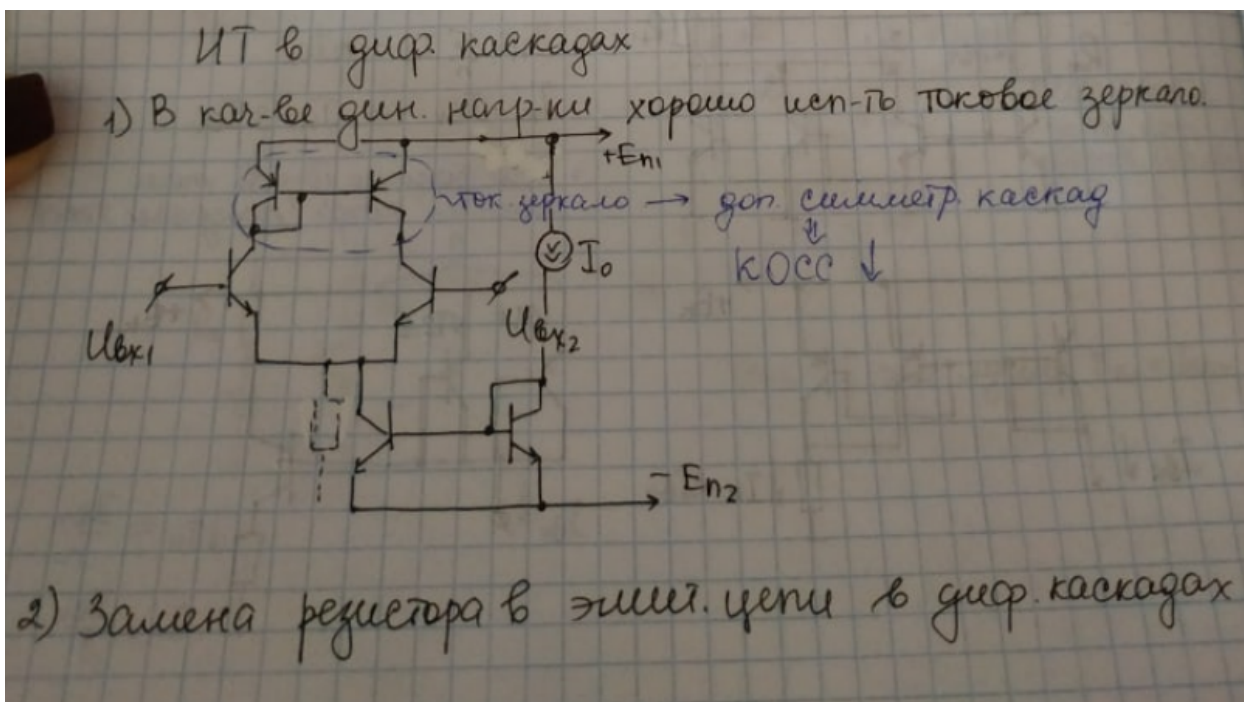 ИТ в диф. каскадах
1) В кач-ве дин. нагр-ки хорошо исп-ть токовое зеркало.
+Еп1
ток. зеркало → доп. симметр. каскад
⇓
КОСС ↓
I0
Uвх1
Uвх2
- Еп2
2) Замена резистора в эмит. цепи в диф. каскадах